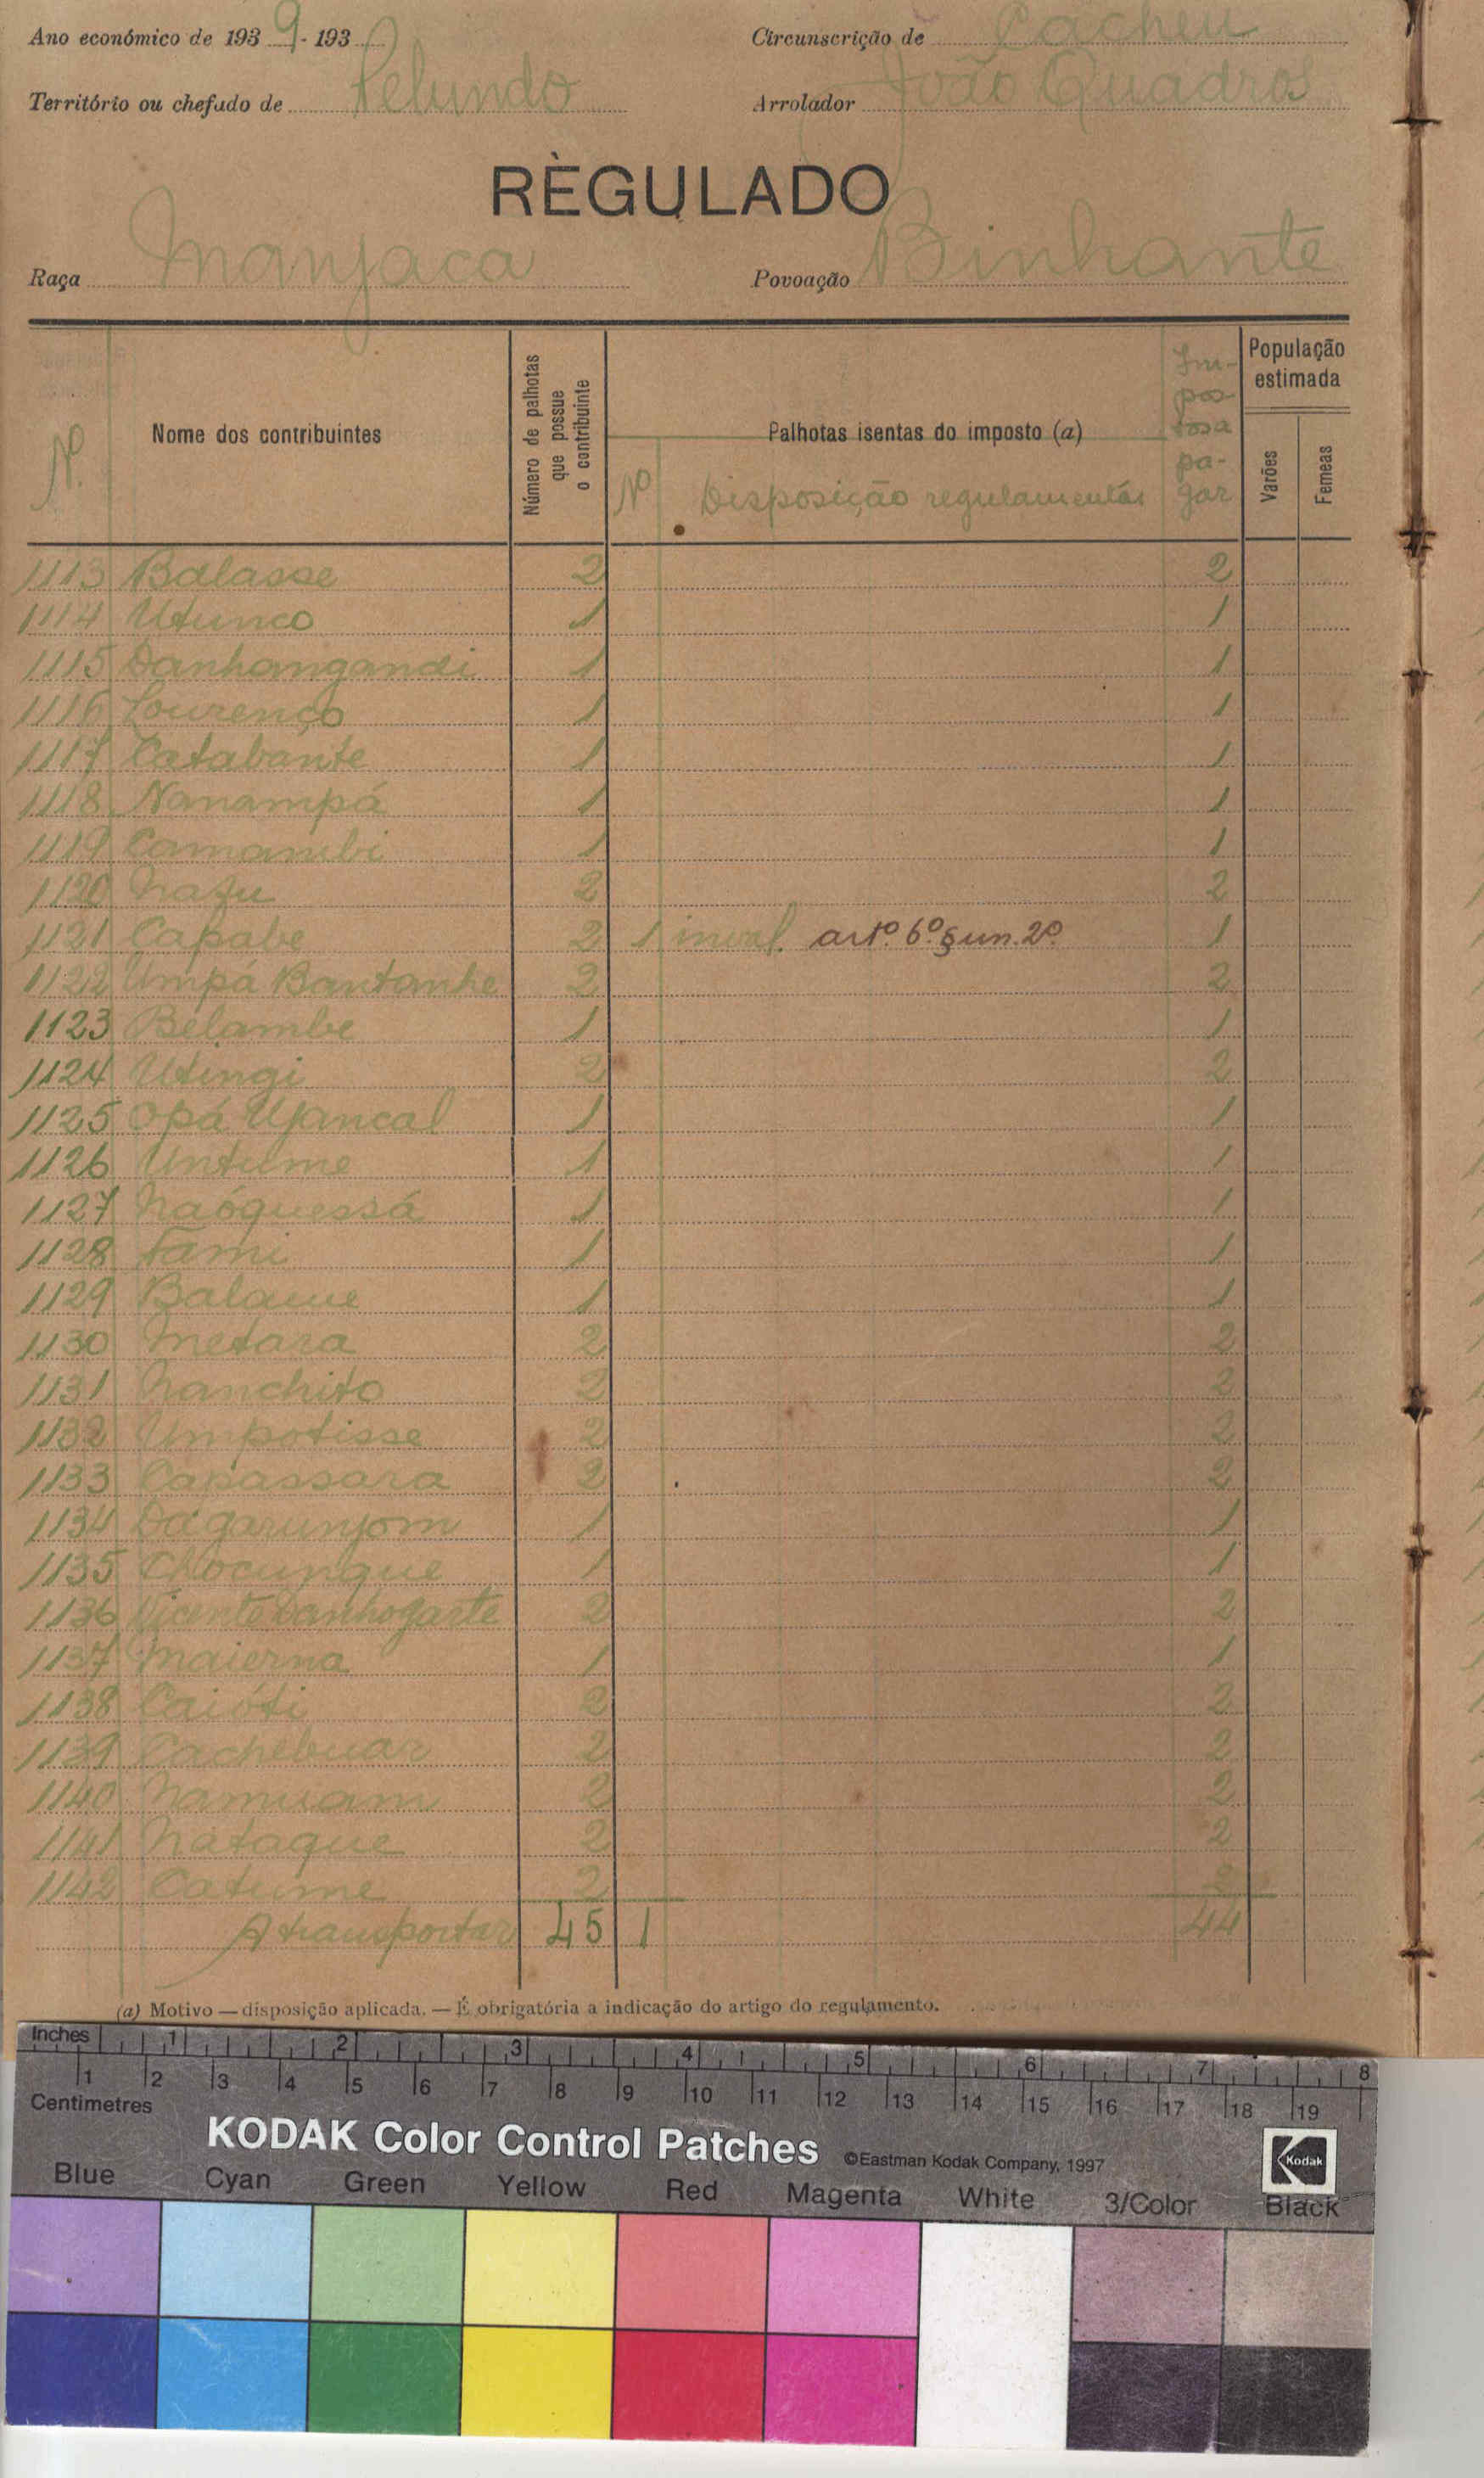 Ano económico de 1939-193
Circunscrição de Cacheu
Território ou chefado de Pelundo
Arrolador João Quadros
RÈGULADO
Raça Manjaca
Povoação Binhante
Nº
Nome dos contribuintes
Número de palhotas
que possue
o contribuinte
Palhotas isentas do imposto (a)
Nº Disposição regulamentár
Im-
pos-
tos a
pa-
gar
População
estimada
Varões
Femeas
1113 Balasse 2 2
1114 Utunco 1 1
1115 Danhangandi 1 1
1116 Lourenço 1 1
1117 Catabante 1 1
1118 Nanampá 1 1
1119 Camambi 1 1
1120 Nafu 2 2
1121 Capabe 2 1 inval. artº. 6º. § un. 2º 1
1122 Umpá Bantanhe 2 2
1123 Belambe 1 1
1124 Utingi 2 2
1125 Opá Ujancal 1 1
1126 Untume 1 1
1127 Naóquessá 1 1
1128 Fami 1 1
1129 Balaume 1 1
1130 Metara 2 2
1131 Nanchito 2 2
1132 Umpotisse 2 2
1133 Capassara 2 2
1134 Dágarunjom 1 1
1135 Chocunque 1 1
1136 Vicente Danhogarte 2 2
1137 Maierna 1 1
1138 Caióti 2 2
1139 Cachebuar 2 2
1140 Namuam 2 2
1141 Nataque 2 2
1142 Catume 2 2
A transportar 45 1 44
(a) Motivo — disposição aplicada. — É obrigatória a indicação do artigo do regulamento.
Inches 1 2 3 4 5 6 7 8
1 2 3 4 5 6 7 8 9 10 11 12 13 14 15 16 17 18 19
Centimetres
KODAK Color Control Patches ©Eastman Kodak Company, 1997 Kodak
Blue Cyan Green Yellow Red Magenta White 3/Color Black